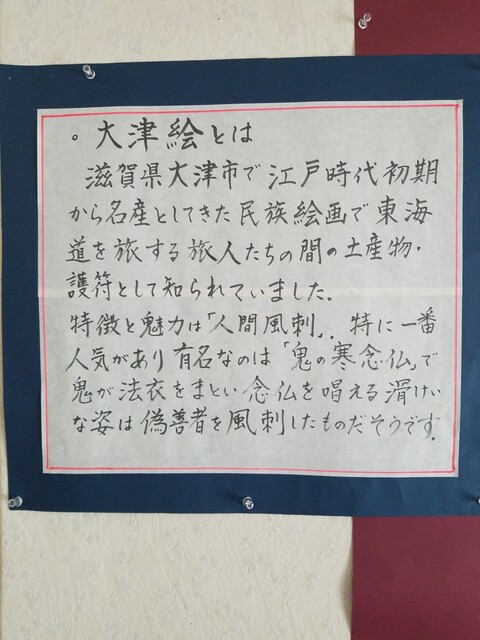 。大津絵とは
滋賀県大津市で江戸時代初期
から名産としてきた民族絵画で東海
道を旅する旅人たちの間の土産物・
護符として知られていました。
特徴と魅力は「人間風刺」。特に一番
人気があり有名なのは「鬼の寒念仏」で
鬼が法衣をまとい念仏を唱える滑けい
な姿は偽善者を風刺したものだそうです。